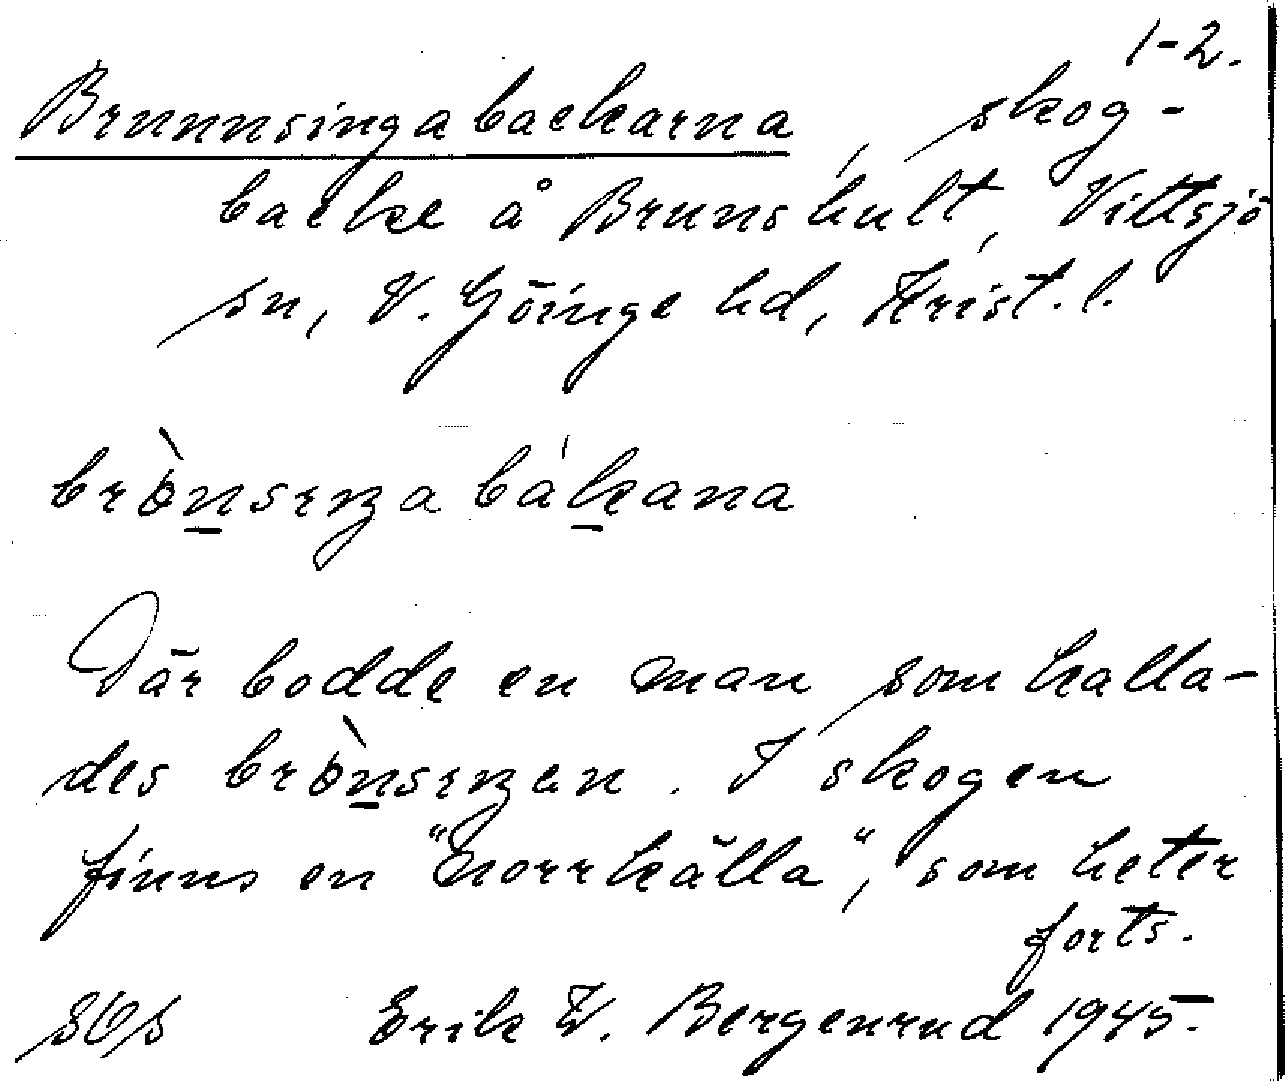 1-2.
Brunnsingabackarna, skog-
backe å Brunshult, Vittsjö
sn, V. Göinge hd, Krist. l.
brònsıŋa bákana
Där bodde en man som kalla-
des brònsıŋen. I skogen
finns en "Norrkälla", som heter
forts.
Erik W. Bergenrud 1945.